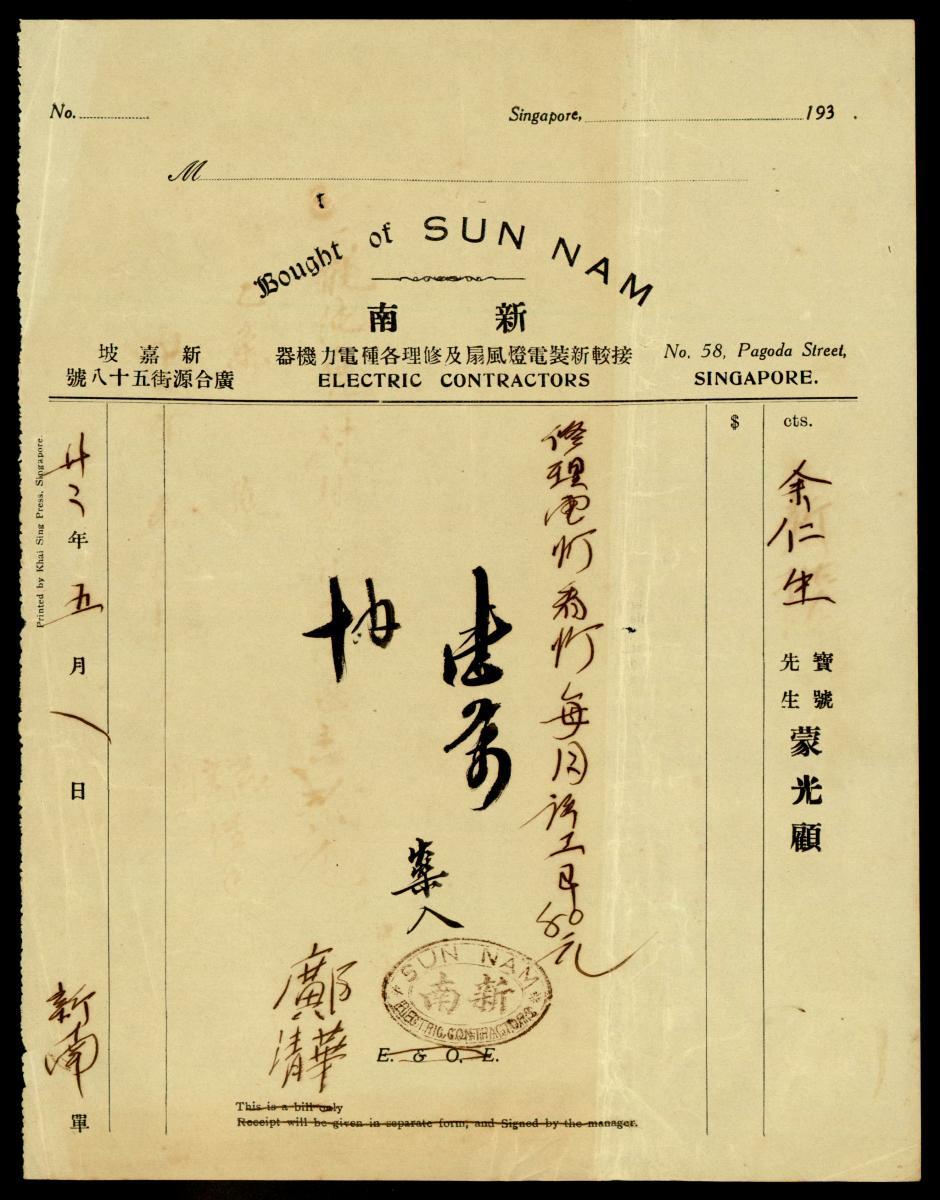 No.
Singapore, 193 .
M
Bought of SUN NAM
南 新
坡 嘉 新
號八十五街源合廣
器機力電種各理修及扇風燈電裝新較接
ELECTRIC CONTRACTORS
No. 58, Pagoda Street,
SINGAPORE.
$ cts.
余仁生
寶號
先生
蒙光顧
修理電灯
每月
元
入
SUN NAM
南新
ELECTRIC CONTRACTORS
鄺清華
E. & O. E.
This is a bill only
Receipt will be given in separate form, and Signed by the manager.
年五月八日
新南單
Printed by Khai Sing Press, Singapore.